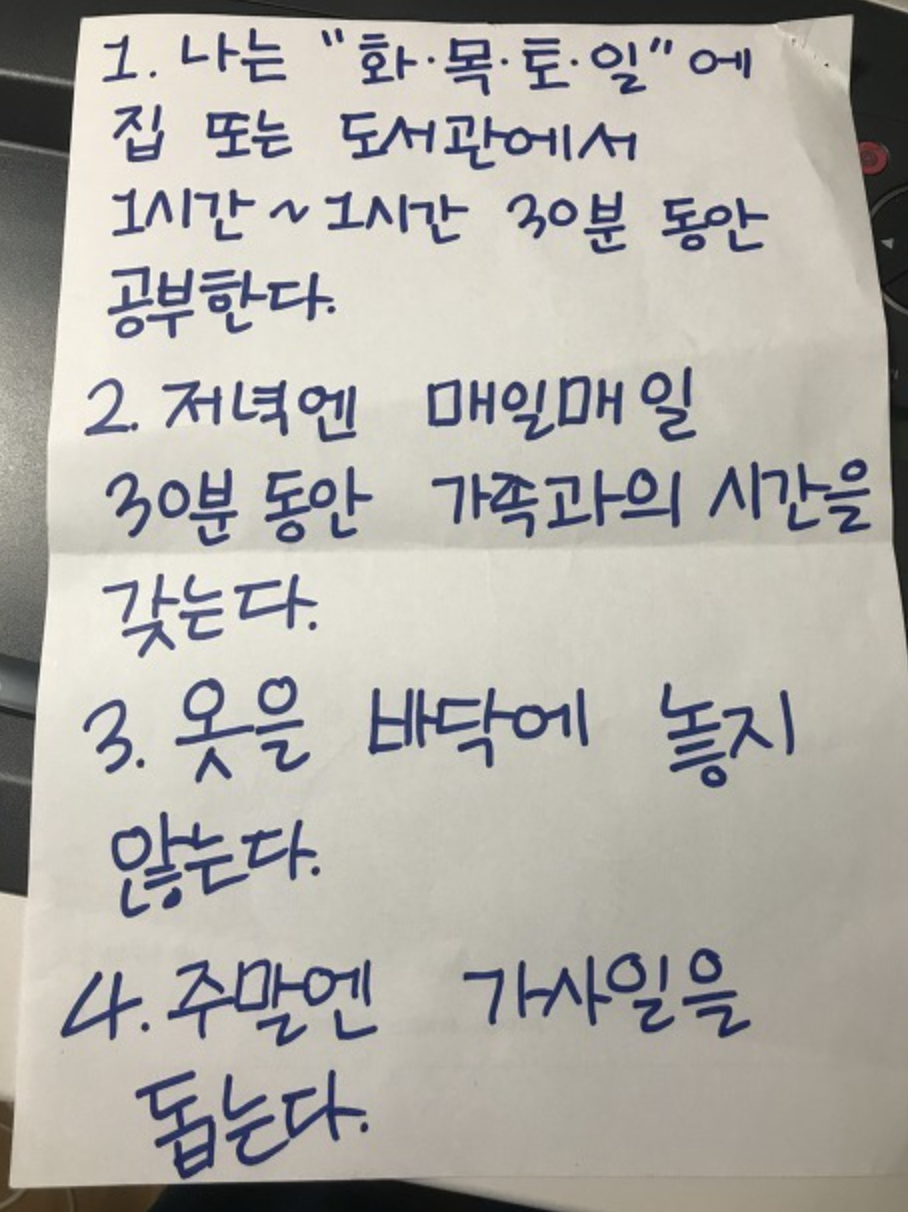 1. 나는 "화·목·토·일"에
집 또는 도서관에서
1시간~1시간 30분 동안
공부한다.
2. 저녁엔 매일매일
30분 동안 가족과의 시간을
갖는다.
3. 옷을 바닥에 놓지
않는다.
4. 주말엔 가사일을
돕는다.